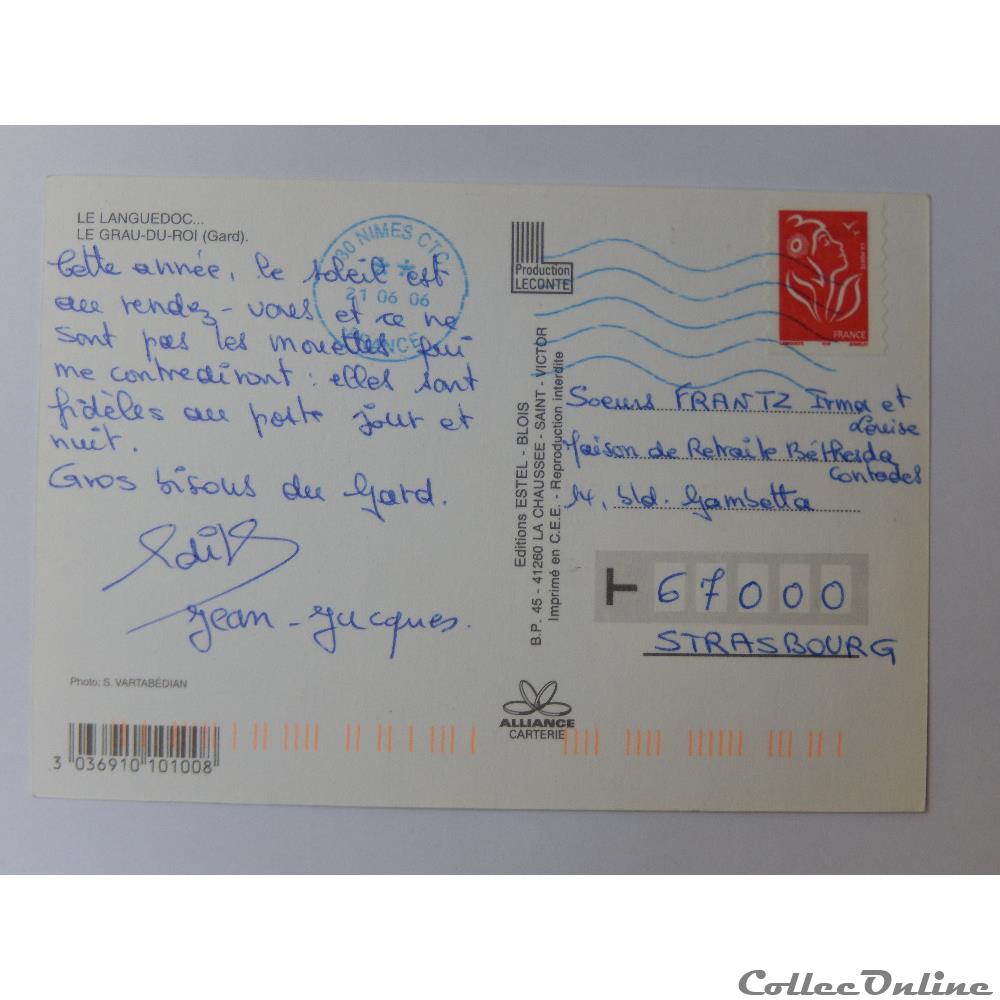 LE LANGUEDOC...
LE GRAU-DU-ROI (Gard).
Cette année, le soleil est
au rendez-vous et ce ne
sont pas les mouettes qui
me contrediront : elles sont
fidèles au poste jour et
nuit.
Gros bisous du Gard.
Edith
Jean-Jacques.
Photo: S. VARTABÉDIAN
3 036910 101008
030 NIMES CTC
21 06 06
FRANCE
Production
LECONTE
Editions ESTEL - BLOIS
B.P. 45 - 41260 LA CHAUSSEE - SAINT - VICTOR
Imprimé en C.E.E. - Reproduction interdite
ALLIANCE
CARTERIE
FRANCE
Soeurs FRANTZ Irma et
Louise
Maison de Retraite Béthesda
Contades
14, bld. Gambetta
T 67000
STRASBOURG
CollecOnline